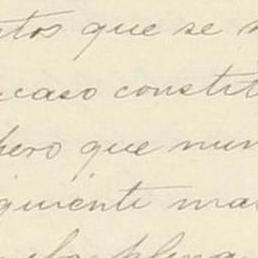 ntos que se
caso constit
pero que nun
guiente ma